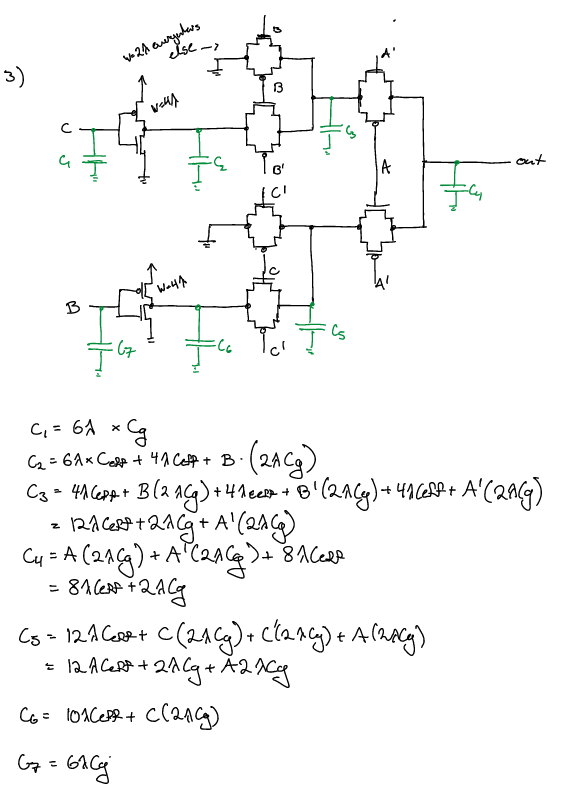 3)
w=2λ everywhere
else →
B
A'
w=4λ
B
C
C₁
C₂
C₃
B'
A
out
C'
C₄
C
A'
w=4λ
B
C₇
C₆
C₅
C'
C₁ = 6λ × Cg
C₂ = 6λ×Ceff + 4λCeff + B·(2λCg)
C₃ = 4λCeff + B(2λCg) + 4λCeff + B'(2λCg) + 4λCeff + A'(2λCg)
= 12λCeff + 2λCg + A'(2λCg)
C₄ = A(2λCg) + A'(2λCg) + 8λCeff
= 8λCeff + 2λCg
C₅ = 12λCeff + C(2λCg) + C'(2λCg) + A(2λCg)
= 12λCeff + 2λCg + A2λCg
C₆ = 10λCeff + C(2λCg)
C₇ = 6λCg